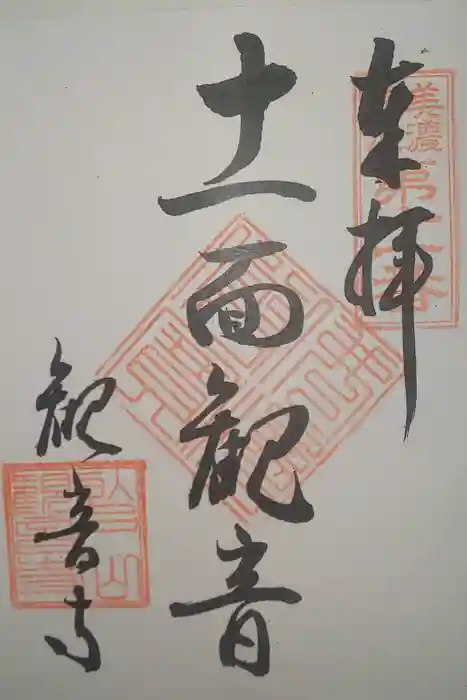 奉拝
美濃
十一面観音
観音寺